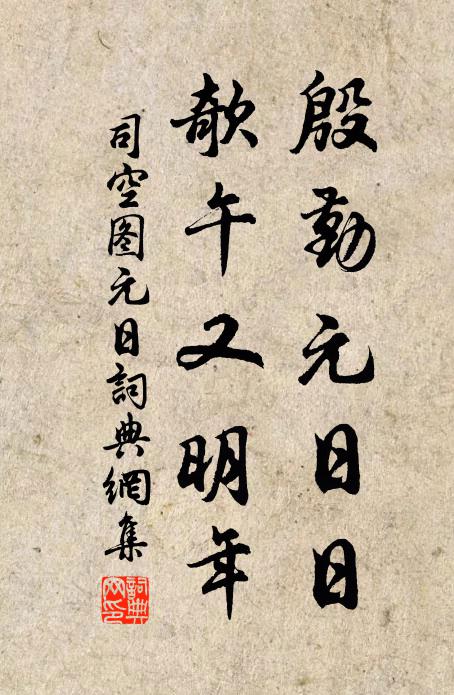 殷勤元日日
欹午又明年
司空图元日詞典網集
詞典网印